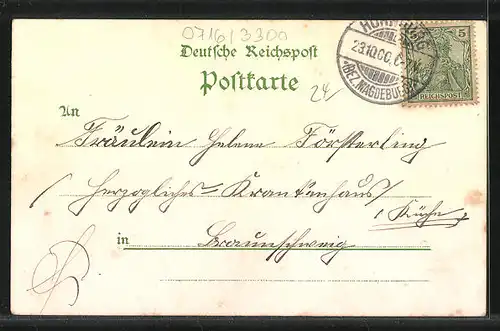 0716/3300
Deutsche Reichspost
Postkarte
5
REICHSPOST
23.10.00
(BEZ. MAGDEBURG)
24
An
Fräulein Helene Försterling
/ Herzogliches Krankenhaus /
/ Küche /
in Braunschweig